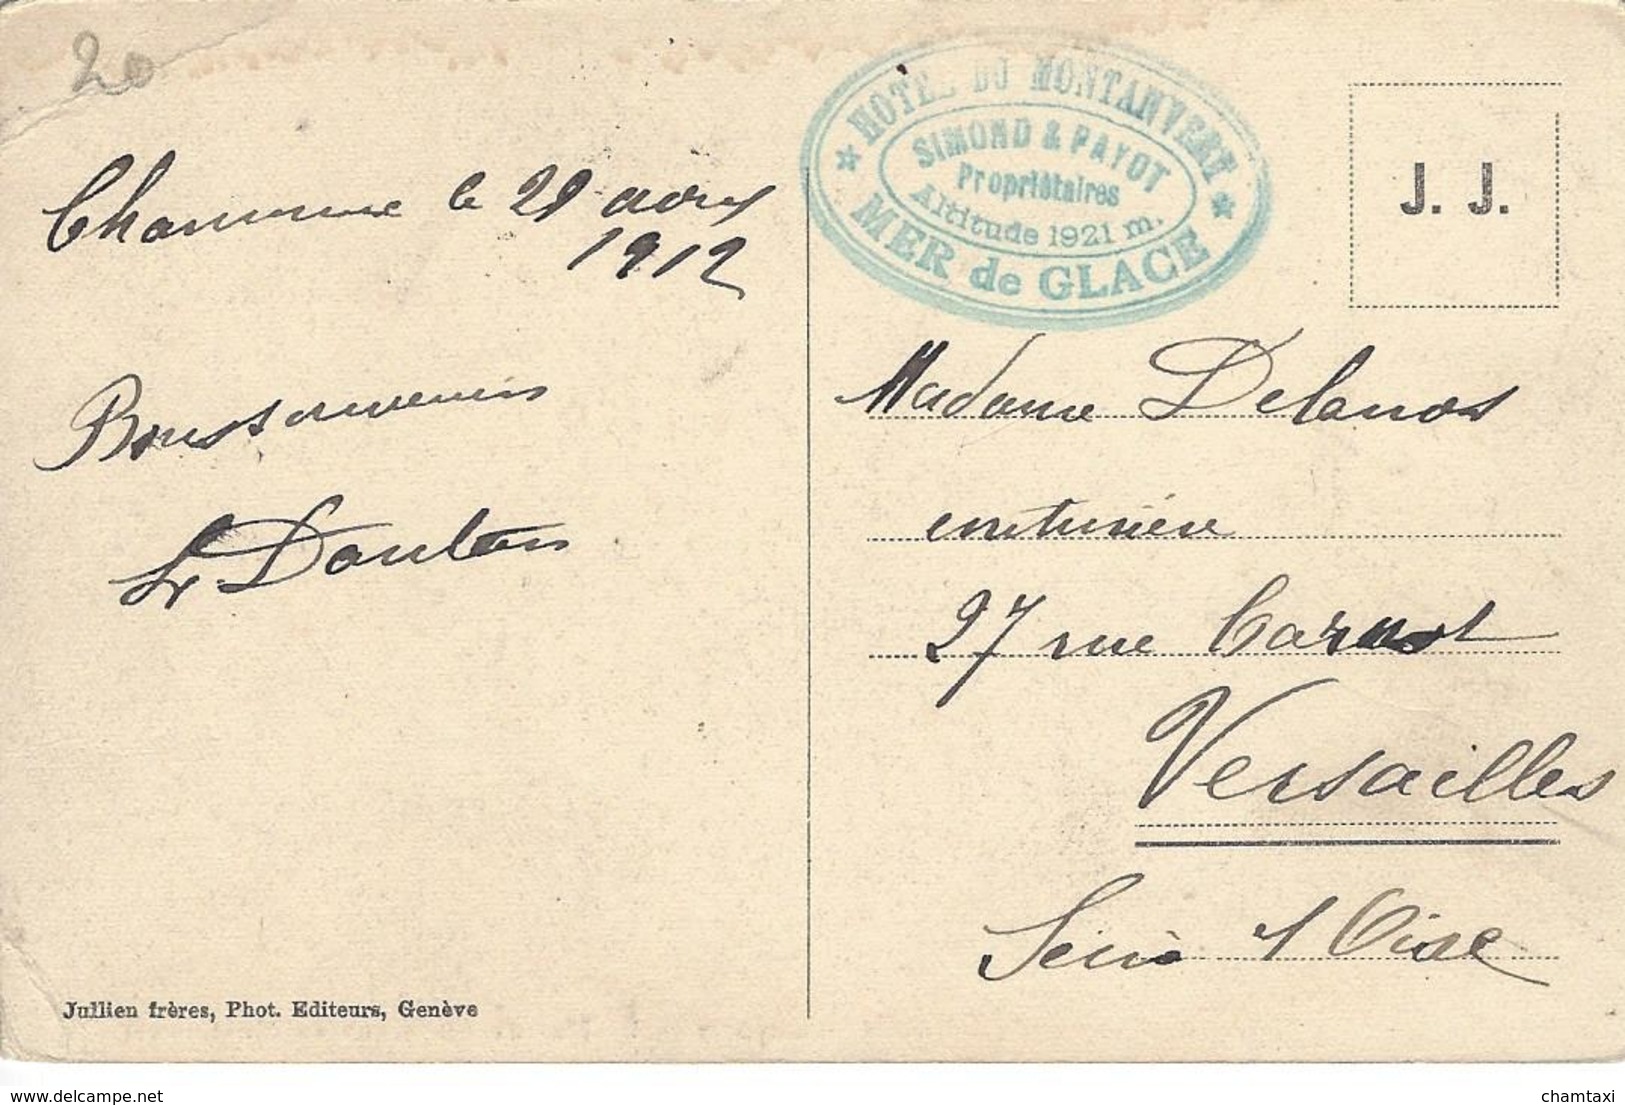 20
Chamonix le 29 août
1912
Bons souvenirs
HOTEL DU MONTANVERT
SIMOND & PAYOT
Propriétaires
Altitude 1921 m.
MER de GLACE
J. J.
Madame Delanos
couturière
27 rue Carnot
Versailles
Seine & Oise
Jullien frères, Phot. Editeurs, Genève
www.delcampe.net
chamtaxi